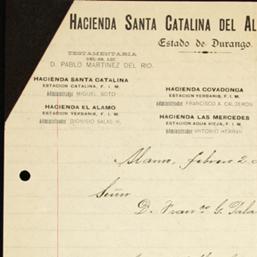 HACIENDA SANTA CATALINA DEL AL
Estado de Durango.
TESTAMENTARIA
DEL SR. LIC.
D. PABLO MARTINEZ DEL RIO.
HACIENDA SANTA CATALINA
ESTACION CATALINA, F. I. M.
Administrador MIGUEL SOTO
HACIENDA COVADONGA
ESTACION YERBANIS, F. I. M.
Administrador FRANCISCO A. CALDERON
HACIENDA EL ALAMO
ESTACION YERBANIS, F. I. M.
Administrador DIONISIO SALAS H.
HACIENDA LAS MERCEDES
ESTACION AGUA VIEJA, F. I. M.
Administrador ANTONIO
Alamo, febrero 2
Señor
D. Franco G. Pala